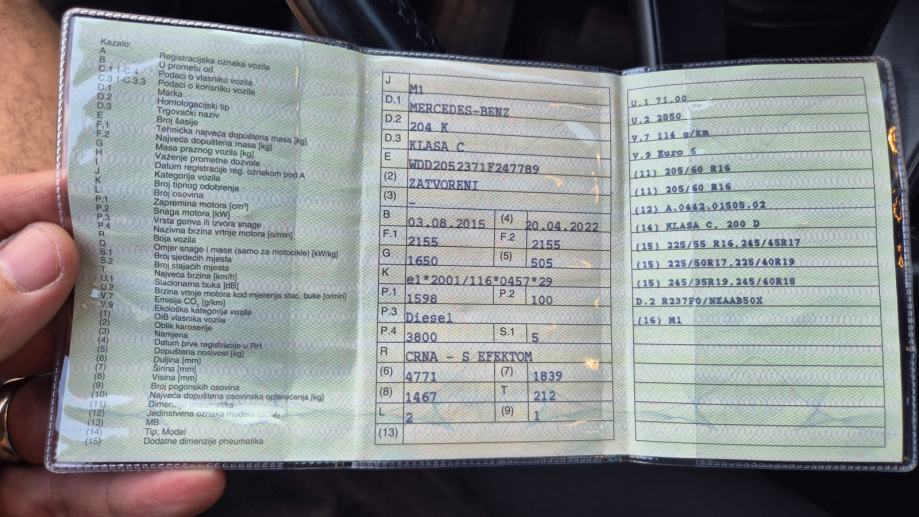 Kazalo:
A Registracijska oznaka vozila
B U prometu od
C.1.1-C.4 Podaci o vlasniku vozila
C.3.1-C.3.3 Podaci o korisniku vozila
D.1 Marka
D.2 Homologacijski tip
D.3 Trgovački naziv
E Broj šasije
F.1 Tehnička najveća dopuštena masa [kg]
F.2 Najveća dopuštena masa [kg]
G Masa praznog vozila [kg]
H Važenje prometne dozvole
I Datum registracije reg. oznakom pod A
J Kategorija vozila
K Broj tipnog odobrenja
L Broj osovina
P.1 Zapremina motora [cm³]
P.2 Snaga motora [kW]
P.3 Vrsta goriva ili izvora snage
P.4 Nazivna brzina vrtnje motora [o/min]
R Boja vozila
Q Omjer snage i mase (samo za motocikle) [kW/kg]
S.1 Broj sjedećih mjesta
S.2 Broj stajaćih mjesta
T Najveća brzina [km/h]
U.1 Stacionarna buka [dB]
U.2 Brzina vrtnje motora kod mjerenja stac. buke [o/min]
V.7 Emisija CO₂ [g/km]
V.9 Ekološka kategorija vozila
(1) OIB vlasnika vozila
(2) Oblik karoserije
(3) Namjena
(4) Datum prve registracije u RH
(5) Dopuštena nosivost [kg]
(6) Duljina [mm]
(7) Širina [mm]
(8) Visina [mm]
(9) Broj pogonskih osovina
(10) Najveća dopuštena osovinska opterećenja [kg]
(11)
(12) Jedinstvena oznaka modela
(13) MB
(14) Tip, Model
(15) Dodatne dimenzije pneumatika
J M1
D.1 MERCEDES-BENZ
D.2 204 K
D.3 KLASA C
E WDD2052371F247789
(2) ZATVORENI
(3) –
B 03.08.2015 (4) 20.04.2022
F.1 2155 F.2 2155
G 1650 (5) 505
K e1*2001/116*0457*29
P.1 1598 P.2 100
P.3 Diesel
P.4 3800 S.1 5
R CRNA - S EFEKTOM
(6) 4771 (7) 1839
(8) 1467 T 212
L 2 (9) 1
(13)
U.1 71.00
U.2 2850
V.7 114 g/km
V.9 Euro 6
(11) 205/60 R16
(11) 205/60 R16
(12) A.0442.01505.02
(14) KLASA C, 200 D
(15) 225/55 R16,245/45R17
(15) 225/50R17,225/40R19
(15) 245/35R19,245/40R18
D.2 R237F0/NZAAB50X
(16) M1